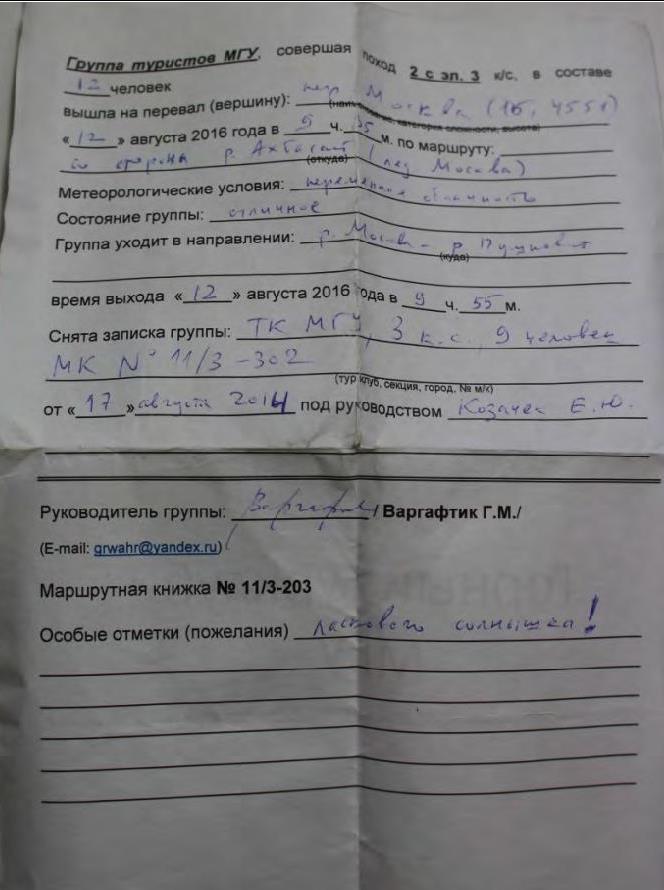 Группа туристов МГУ, совершая поход 2 с эл. 3 к/с, в составе
12 человек
вышла на перевал (вершину): пер. Москва (1Б, 4551)
(наименование, категория сложности, высота)
«12» августа 2016 года в 9 ч. 35 м. по маршруту:
со стороны р. (лед Москва)
(откуда)
Метеорологические условия: переменная облачность
Состояние группы: отличное
Группа уходит в направлении: р. Москва –
(куда)
время выхода «12» августа 2016 года в 9 ч. 55 м.
Снята записка группы: ТК МГУ, 3 к.с., 9 человек
МК № 11/3-302
(тур клуб, секция, город, № м/к)
от «17» августа 2014 под руководством Козачек Е.Ю.
Руководитель группы: Варгафтик / Варгафтик Г.М./
(E-mail: grwahr@yandex.ru)
Маршрутная книжка № 11/3-203
Особые отметки (пожелания) ласкового солнышка!